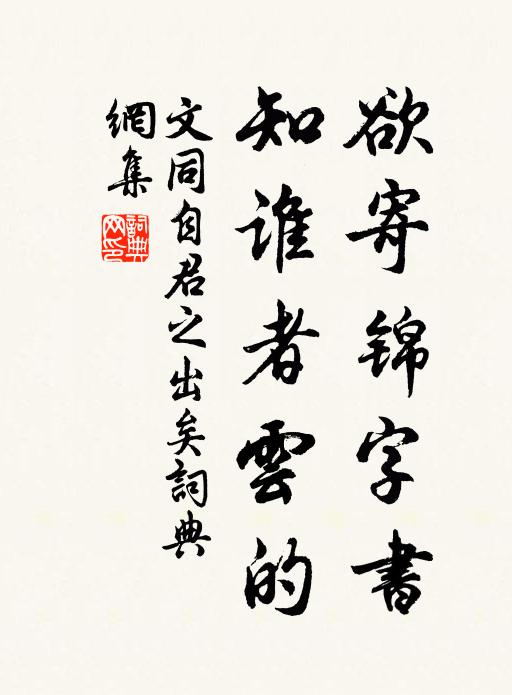 欲寄锦字書
知誰者雲的
文同自君之出矣詞典
網集
詞典網印